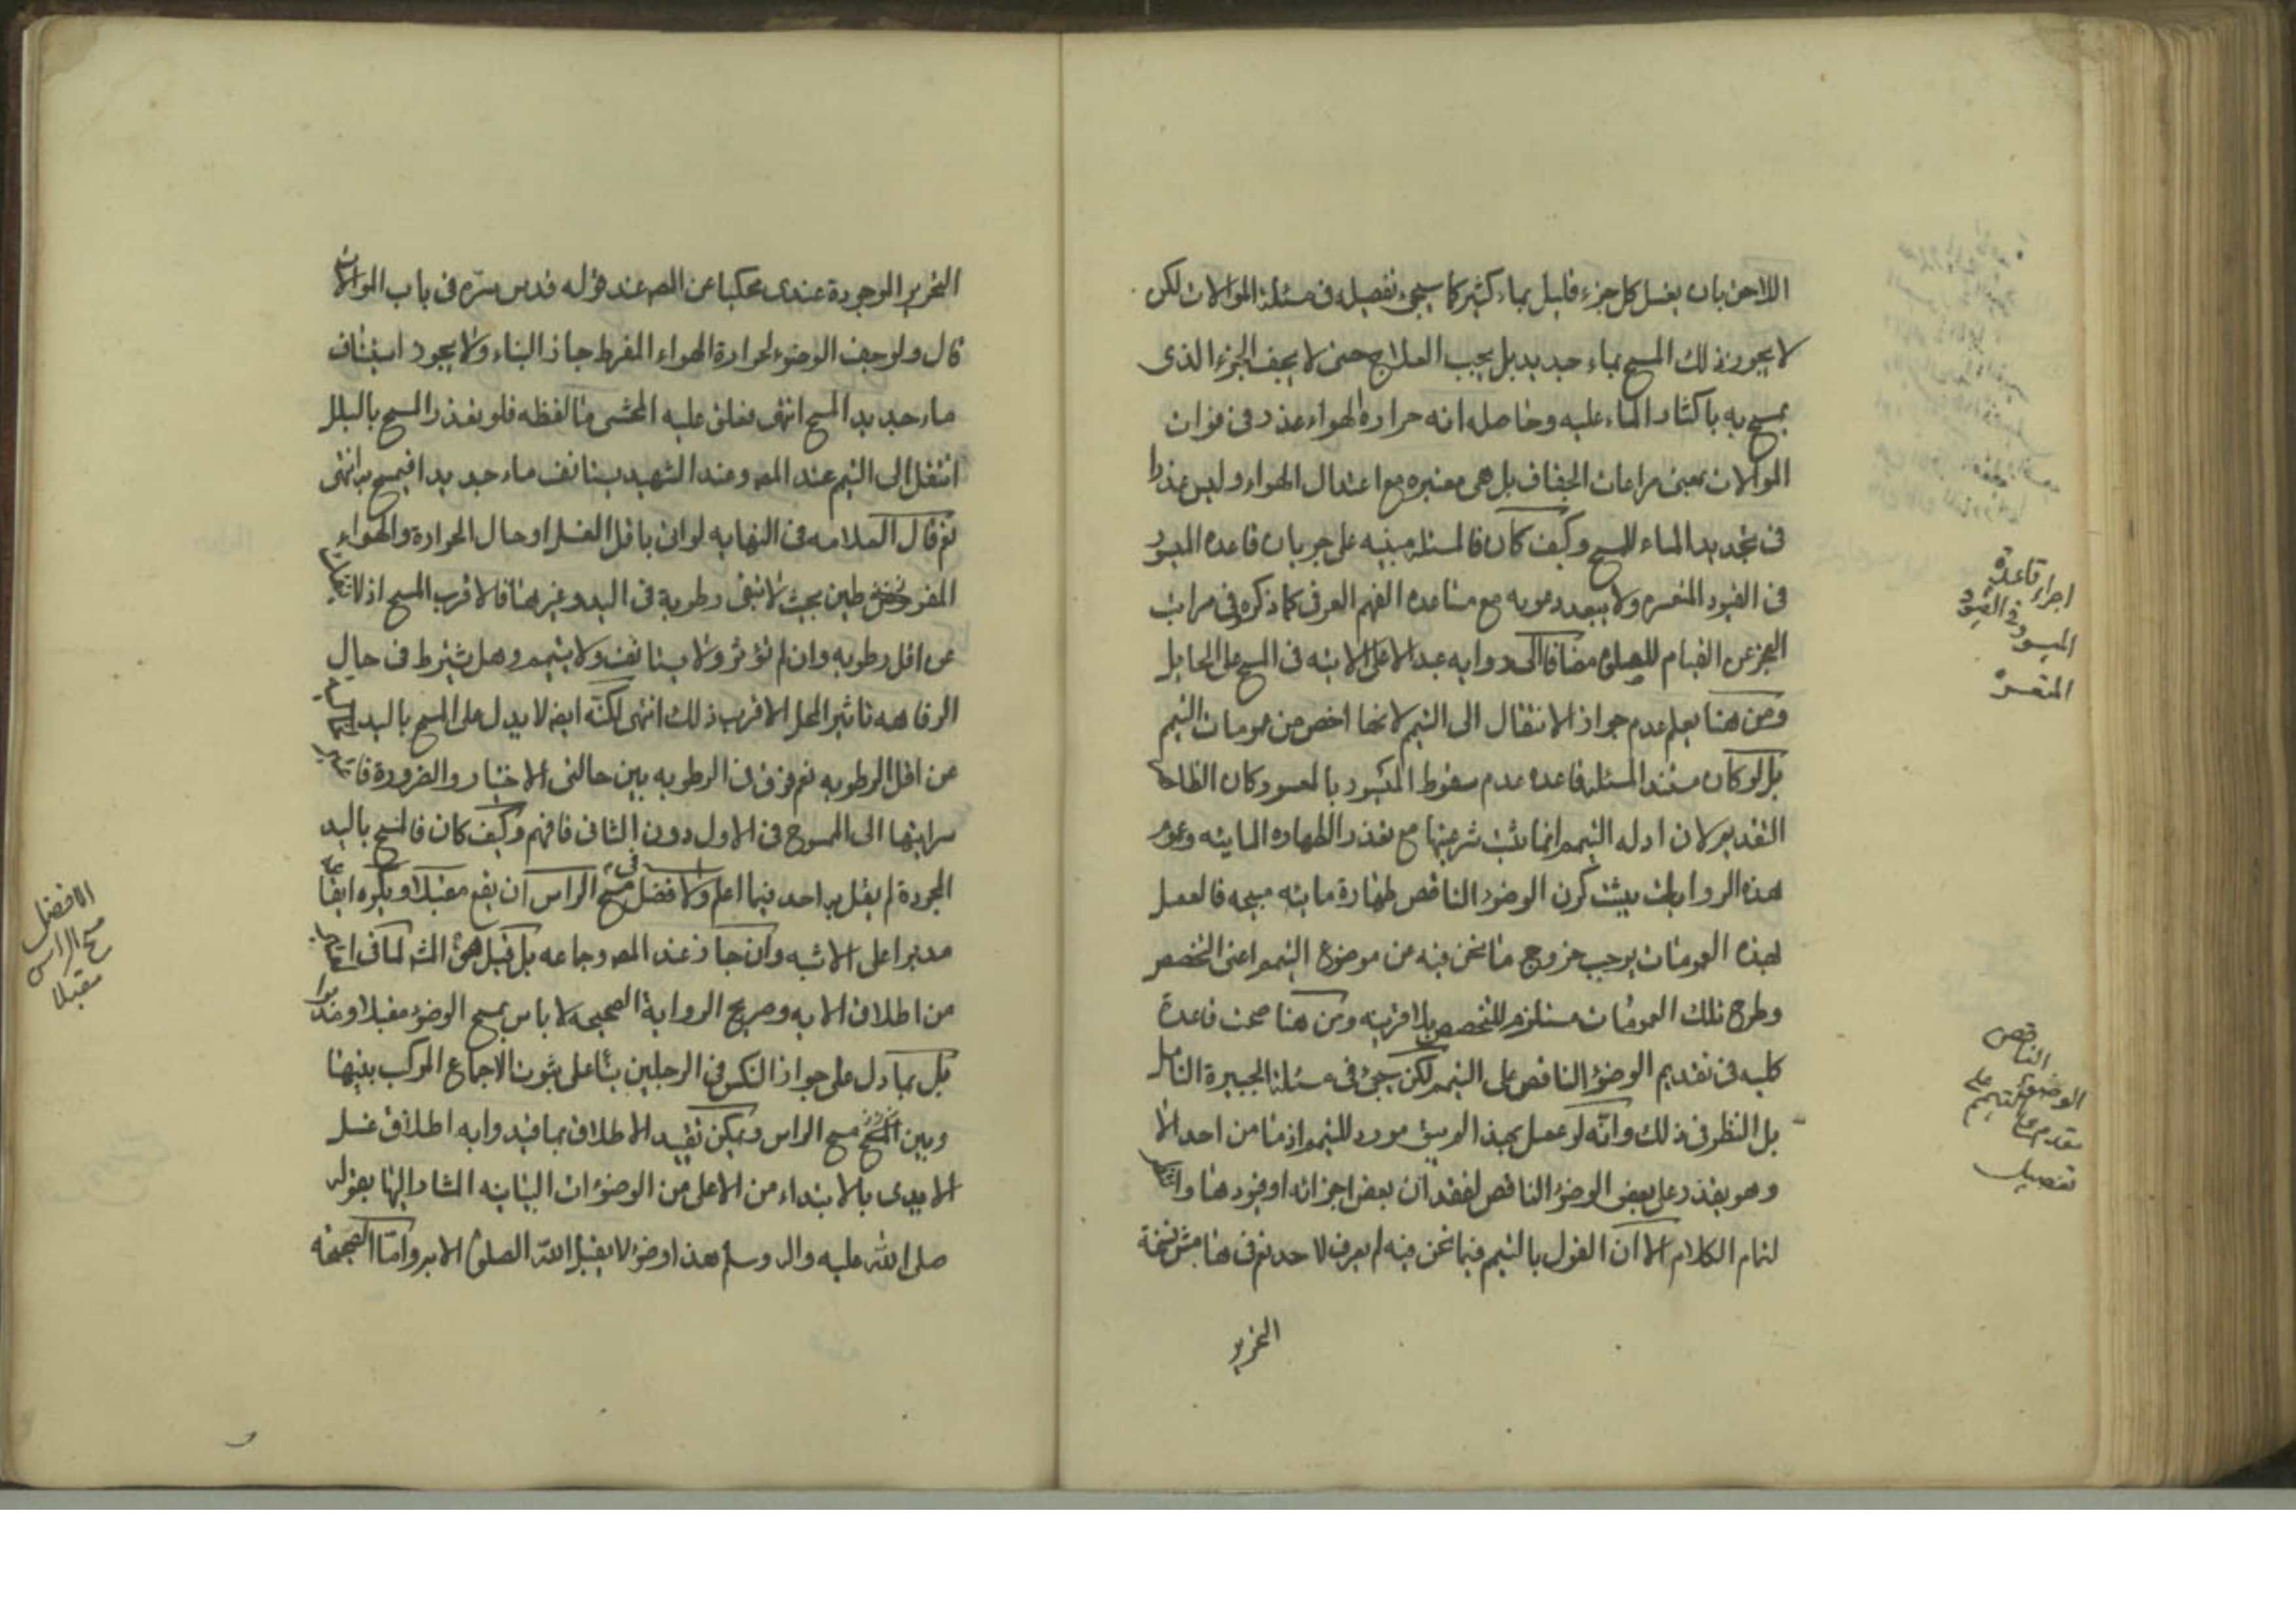 اللاحق بان يغسل كل جزء قليل بماء كثير كما سيجئ تفصيله فى مسئلة الموالات لكن
لا يجوز ذلك المسح بماء جديد بل يجب العلاج حتى لا يجف الجزء الذى
يمسح به باكثار الماء عليه وحاصله انه حرارة الهواء عذر فى فوات
الموالات بمعنى مراعات الجفاف بل هى معتبره مع اعتدال الهواء وليس عذرا
فى تجديد الماء للمسح وكيف كان فالمسئلة مبنيه على جريان قاعده الميسور
فى القيود المتعسره ولا يبعد دعويه مع مساعده الفهم العرفى كما ذكروه فى مراتب
العجز عن القيام للصلوة مضافا الى روايه عبد الاعلى الاتيه فى المسح على الحايل
ومن هنا يعلم عدم جواز الانتقال الى التيمم لانها اخص من عمومات التيمم
بل لو كان مستند المسئلة قاعده عدم سقوط الميسور بالمعسور وكان الظاهر
التقديم لان ادله التيمم انما تثبت شرعيتها مع تعذر الطهاره المائيه وعموم
هذه الروايات يثبت كون الوضوء الناقص طهارة مائيه مبيحه فالعمل
لهذه العمومات يوجب خروج ما نحن فيه من موضوع التيمم اعنى التخصص
وطرح تلك العمومات مستلزم للتخصيص بلا قرينه ومن هنا صحت قاعدة
كليه فى تقديم الوضوء الناقص على التيمم لكن سيجئ فى مسئلة الجبيرة التامل
بل النظر فى ذلك وانه لو عمل بهذا لم يبق مورد للتيمم اذ ما من احد الا
وهو يقدر على بعض الوضوء الناقص لفقدان بعض اجزائه او قيوده هنا و
لتمام الكلام الا ان القول بالتيمم فيما نحن فيه لم يعرف لاحد نعم فى هامش نسخة
التحرير
اجراء قاعدة
الميسور فى القيود
المتعسرة
الناقص
الوضوء على التيمم
مقدم مع
تفصيل
التحرير الموجودة عندى محكيا عن المص عند قوله قدس سره فى باب الموالات
قال ولو جف الوضوء لحرارة الهواء المفرط جاز البناء ولا يجوز استيناف
ماء جديد المسح انتهى فعلق عليه المحشى ما لفظه فلو تعذر المسح بالبلل
انتقل الى التيمم عند المص وعند الشهيد يستانف ماء جديدا فيمسح به انتهى
نعم قال العلامه فى النهايه لو اتى باقل الغسل او حال الحرارة والهواء
المفرطين بحيث لا تبقى رطوبة فى اليد وغيرها فالاقرب المسح اذ لا
عن اقل رطوبه وان لم تؤثر ولا يستانف ولا يتيمم وهل يشترط فى حال
الرفاهه تاثير المحل الاقرب ذلك انتهى لكنه ايضا لا يدل على المسح باليد
عن اقل الرطوبه نعم فرق فى الرطوبه بين حالتى الاختيار والضرورة
سرايتها الى الممسوح فى الاول دون الثانى فافهم وكيف كان فالمسح باليد
المجردة لم يقل به احد فيما اعلم والافضل فى مسح الراس ان يقع مقبلا ويكره ايقاعه
مدبرا على الاشبه وان جاز عند المص وجماعه بل قيل هو المشهور
من اطلاق الايه وصريح الرواية الصحيحه لا باس بمسح الوضوء مقبلا ومدبرا
بل بما دل على جواز النكس فى الرجلين بناء على ثبوت الاجماع المركب بينهما
وبين مسح الراس ويمكن تقييد الاطلاق بما قيد وابه اطلاق غسل
الايدى بالابتداء من الاعلى من الوضوءات البيانيه المشار اليها بقوله
صلى الله عليه واله وسلم هذا وضوء لا يقبل الله الصلوة الا به واما الصحيحه
الافضل
مسح الراس
مقبلا